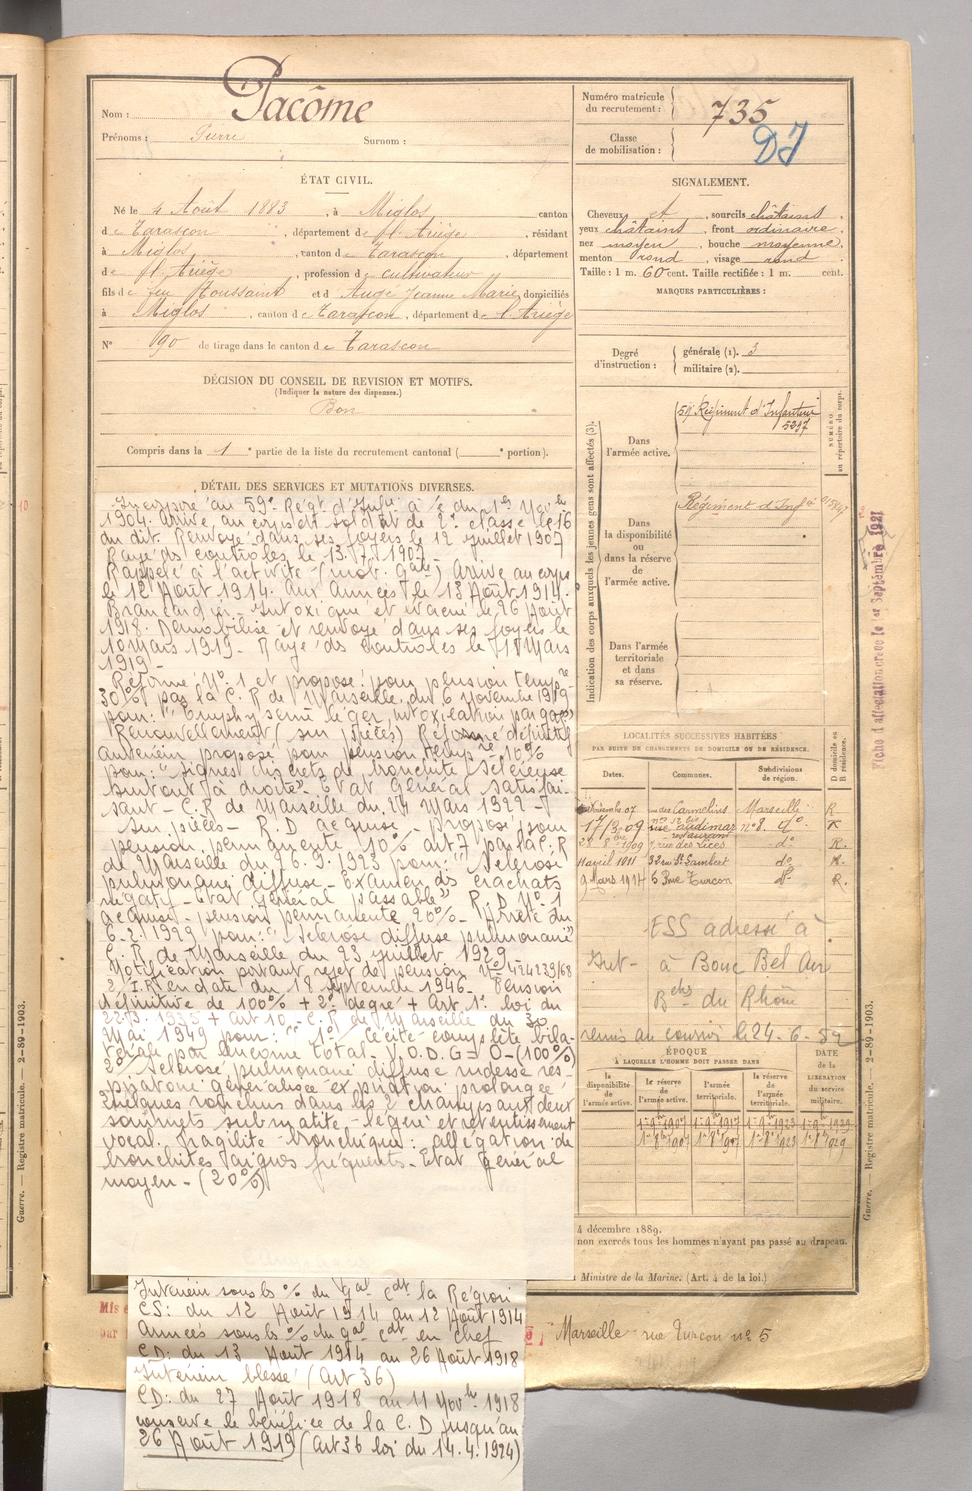 Nom : Pacôme
Prénoms : Pierre Surnom :
Numéro matricule du recrutement : 735
Classe de mobilisation : DJ
ÉTAT CIVIL.
Né le 4 Août 1883, à Miglos canton
de Tarascon, département de l'Ariège, résidant
à Miglos, canton de Tarascon, département
de l'Ariège, profession de cultivateur
fils de feu Toussaint et d'Augé Jeanne Marie, domiciliés
à Miglos, canton de Tarascon, département de l'Ariège
N° 90 de tirage dans le canton de Tarascon
DÉCISION DU CONSEIL DE REVISION ET MOTIFS.
(Indiquer la nature des dispenses.)
Bon
Compris dans la 1e partie de la liste du recrutement cantonal ( e portion).
DÉTAIL DES SERVICES ET MUTATIONS DIVERSES.
Incorporé au 59e Régt d'Infie à c. du 1er Novbre
1904. Arrivé au corps et soldat de 2e classe le 16
du dit. Renvoyé dans ses foyers le 12 juillet 1907
Rayé des contrôles le 13.7.1907
Rappelé à l'activité (mob. gale) Arrivé au corps
le 12 Août 1914. Aux armées le 13 Août 1914.
Brancardier. Intoxiqué et évacué le 26 Août
1918. Démobilisé et renvoyé dans ses foyers le
10 Mars 1919. Rayé des contrôles le 11 Mars
1919.
Réforme N° 1 et proposé pour pension tempre
30% par la C. R. de Marseille du 6 Novembre 1919
pour : "Emphysème léger, intoxication par gaz"
Renouvellement (sur pièces) Réforme définitive
antérieur proposé pour pension tempre 10%
pour : "signes discrets de bronchite scléreuse
surtout à droite" Etat Général satisfai-
sant - C.R de Marseille du 24 Mars 1922 -
sur pièces - R.D acquise - proposé pour
pension permanente 10% art 7 par la C.R
de Marseille du 26.9.1923 pour : "Sclérose
pulmonaire diffuse - Examen des crachats
négatif - Etat Général passable" R.D N° 1
acquise - pension permanente 20% - Arrêté du
6.2.1929 pour : "Sclérose diffuse pulmonaire"
C. R. de Marseille du 23 juillet 1929
Notification portant rejet de pension N° 424239/68
2/I.R en date du 18 Septembre 1946. Pension
définitive de 100% + 2° degré + Art 1° loi du
22.3.1935 + Art 10 - C. R de Marseille du 30
Mai 1949 pour : "1° Cécité complète bila-
térale par leucome total - V.O.D.G = O - (100%)
2° Sclérose pulmonaire diffuse rudesse res-
piratoire généralisée expiration prolongée
quelques ronchus dans les 2 champs aux deux
sommets submatité légère et retentissement
vocal. Fragilité bronchique : allégation de
bronchites aigues fréquentes. Etat général
moyen - (20%)
Intérieur sous ls % du Gal Cdt la Région
CS : du 12 Août 1914 au 12 Août 1914
Armées sous ls % du gal Cdt en Chef
CD : du 13 Août 1914 au 26 Août 1918
Intérieur blessé (Art 36)
CD : du 27 Août 1918 au 11 Novbre 1918
conserve le bénéfice de la C. D jusqu'au
26 Août 1919 (Art 36 loi du 14.4.1924)
SIGNALEMENT.
Cheveux et, sourcils châtains,
yeux châtains, front ordinaire,
nez moyen, bouche moyenne,
menton rond, visage rond
Taille : 1 m. 60 cent. Taille rectifiée : 1 m. cent.
MARQUES PARTICULIÈRES :
Degré d'instruction : générale (1). 3
militaire (2).
Indication des corps auxquels les jeunes gens sont affectés (3).
NUMÉRO au répertoire du corps.
Dans l'armée active.
59e Régiment d'Infanterie
5297
Dans la disponibilité ou dans la réserve de l'armée active.
Régiment d'Infie
Dans l'armée territoriale et dans sa réserve.
Fiche d'affectation créée le 1er Septembre 1921
LOCALITÉS SUCCESSIVES HABITÉES
PAR SUITE DE CHANGEMENTS DE DOMICILE OU DE RÉSIDENCE.
Dates. Communes. Subdivisions de région. D domicile ou R résidence.
07 rue des Carmelins Marseille R
17/3-09 rue audimar n° 8. d° R
1909 rue des Lices d° R.
11 avril 1911 32 rue St Lambert d° R.
9 Mars 1914 6 Rue Turcon d° R.
ESS adressé à
Int - à Bouc Bel Air
Bches du Rhône
remis au courroi le 24-6-52
ÉPOQUE
À LAQUELLE L'HOMME DOIT PASSER DANS
DATE DE LA LIBÉRATION du service militaire.
la disponibilité de l'armée active. la réserve de l'armée active. l'armée territoriale. la réserve de l'armée territoriale.
1-9-1907 1-9-1917 1-9-1923 1-9-1929
4 décembre 1889.
non exercés tous les hommes n'ayant pas passé au drapeau.
Ministre de la Marine. (Art. 4 de la loi.)
Mis e
par
Marseille rue Turcon n° 5
Guerre. — Registre matricule. — 2-89-1903.
Guerre. — Registre matricule. — 2-89-1903.